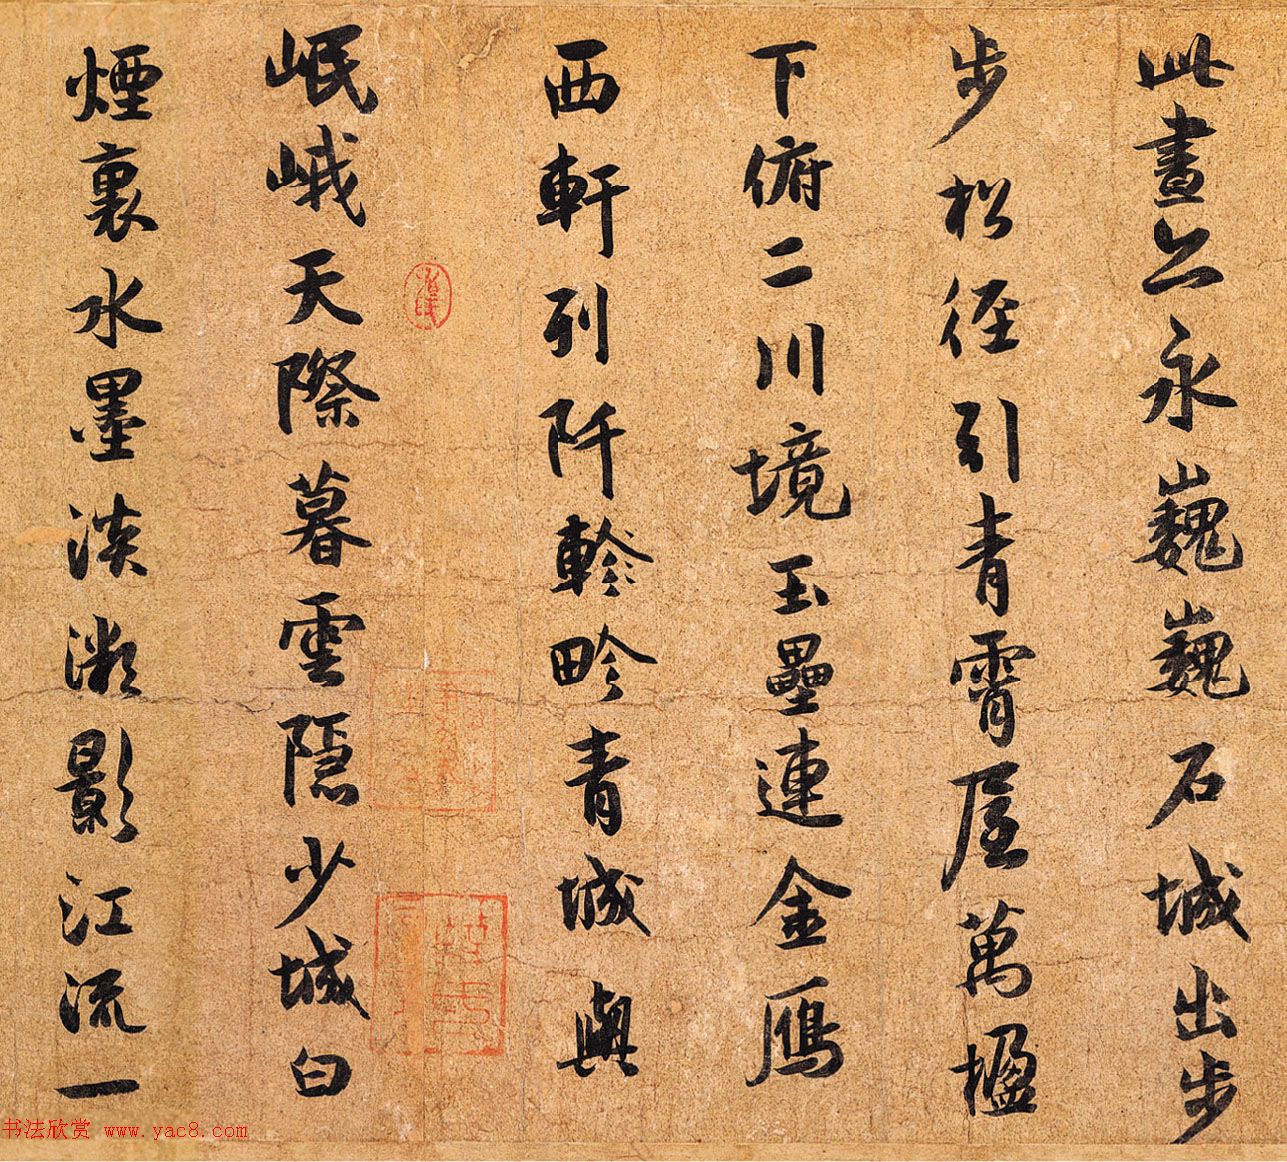 此畫永巍巍石城出步
步松徑引青霄屋萬楹
下俯二川境玉壘連金雁
西軒列阡軫畛青城與
岷峨天際暮雲隱少城白
煙裏水墨淡影江流一
书法欣赏 www.yac8.com